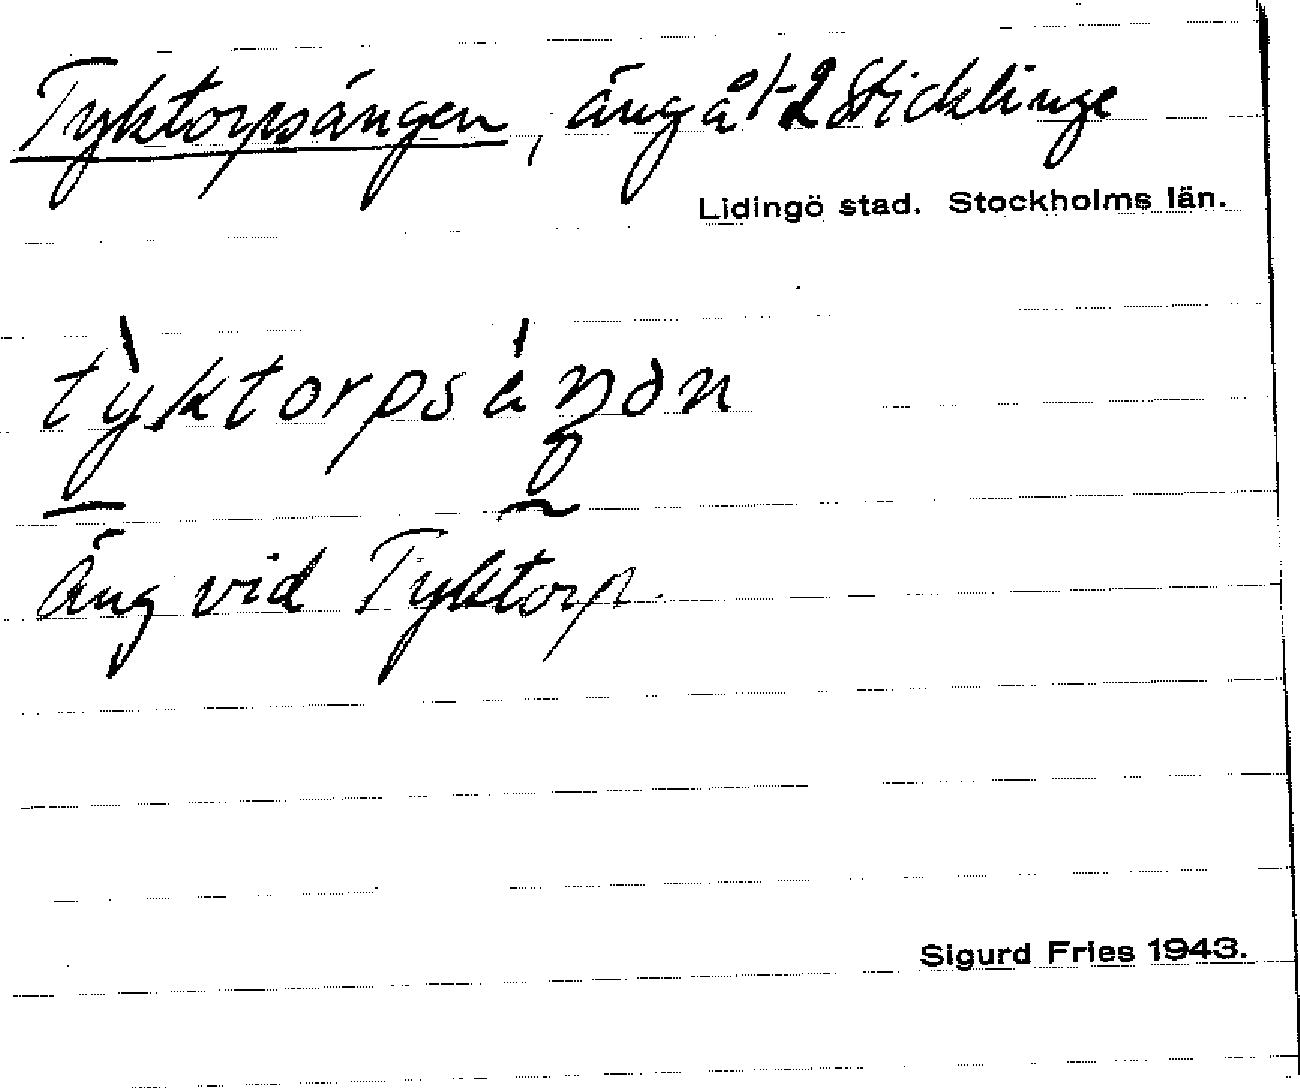 Tyktorpsängen, äng å 1-2 Sticklinge
Lidingö stad. Stockholms län.
Äng vid Tyktorp
Sigurd Fries 1943.